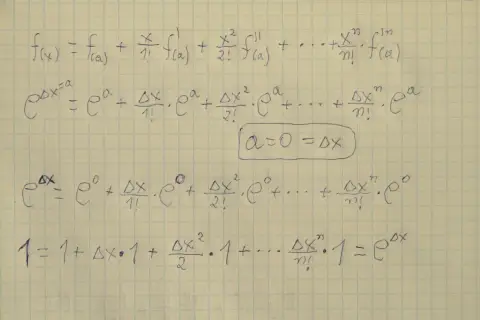 f(x) = f(a) + x/1! f'(a) + x²/2! f''(a) + ··· + xⁿ/n! · f'ⁿ(a)
e^Δx=a = e^a + Δx/1! · e^a + Δx²/2! · e^a + ··· + Δxⁿ/n! · e^a
a = 0 = Δx
e^Δx = e^0 + Δx/1! · e^0 + Δx²/2! · e^0 + ··· + Δxⁿ/n! · e^0
1 = 1 + Δx · 1 + Δx²/2 · 1 + ··· Δxⁿ/n! · 1 = e^Δx